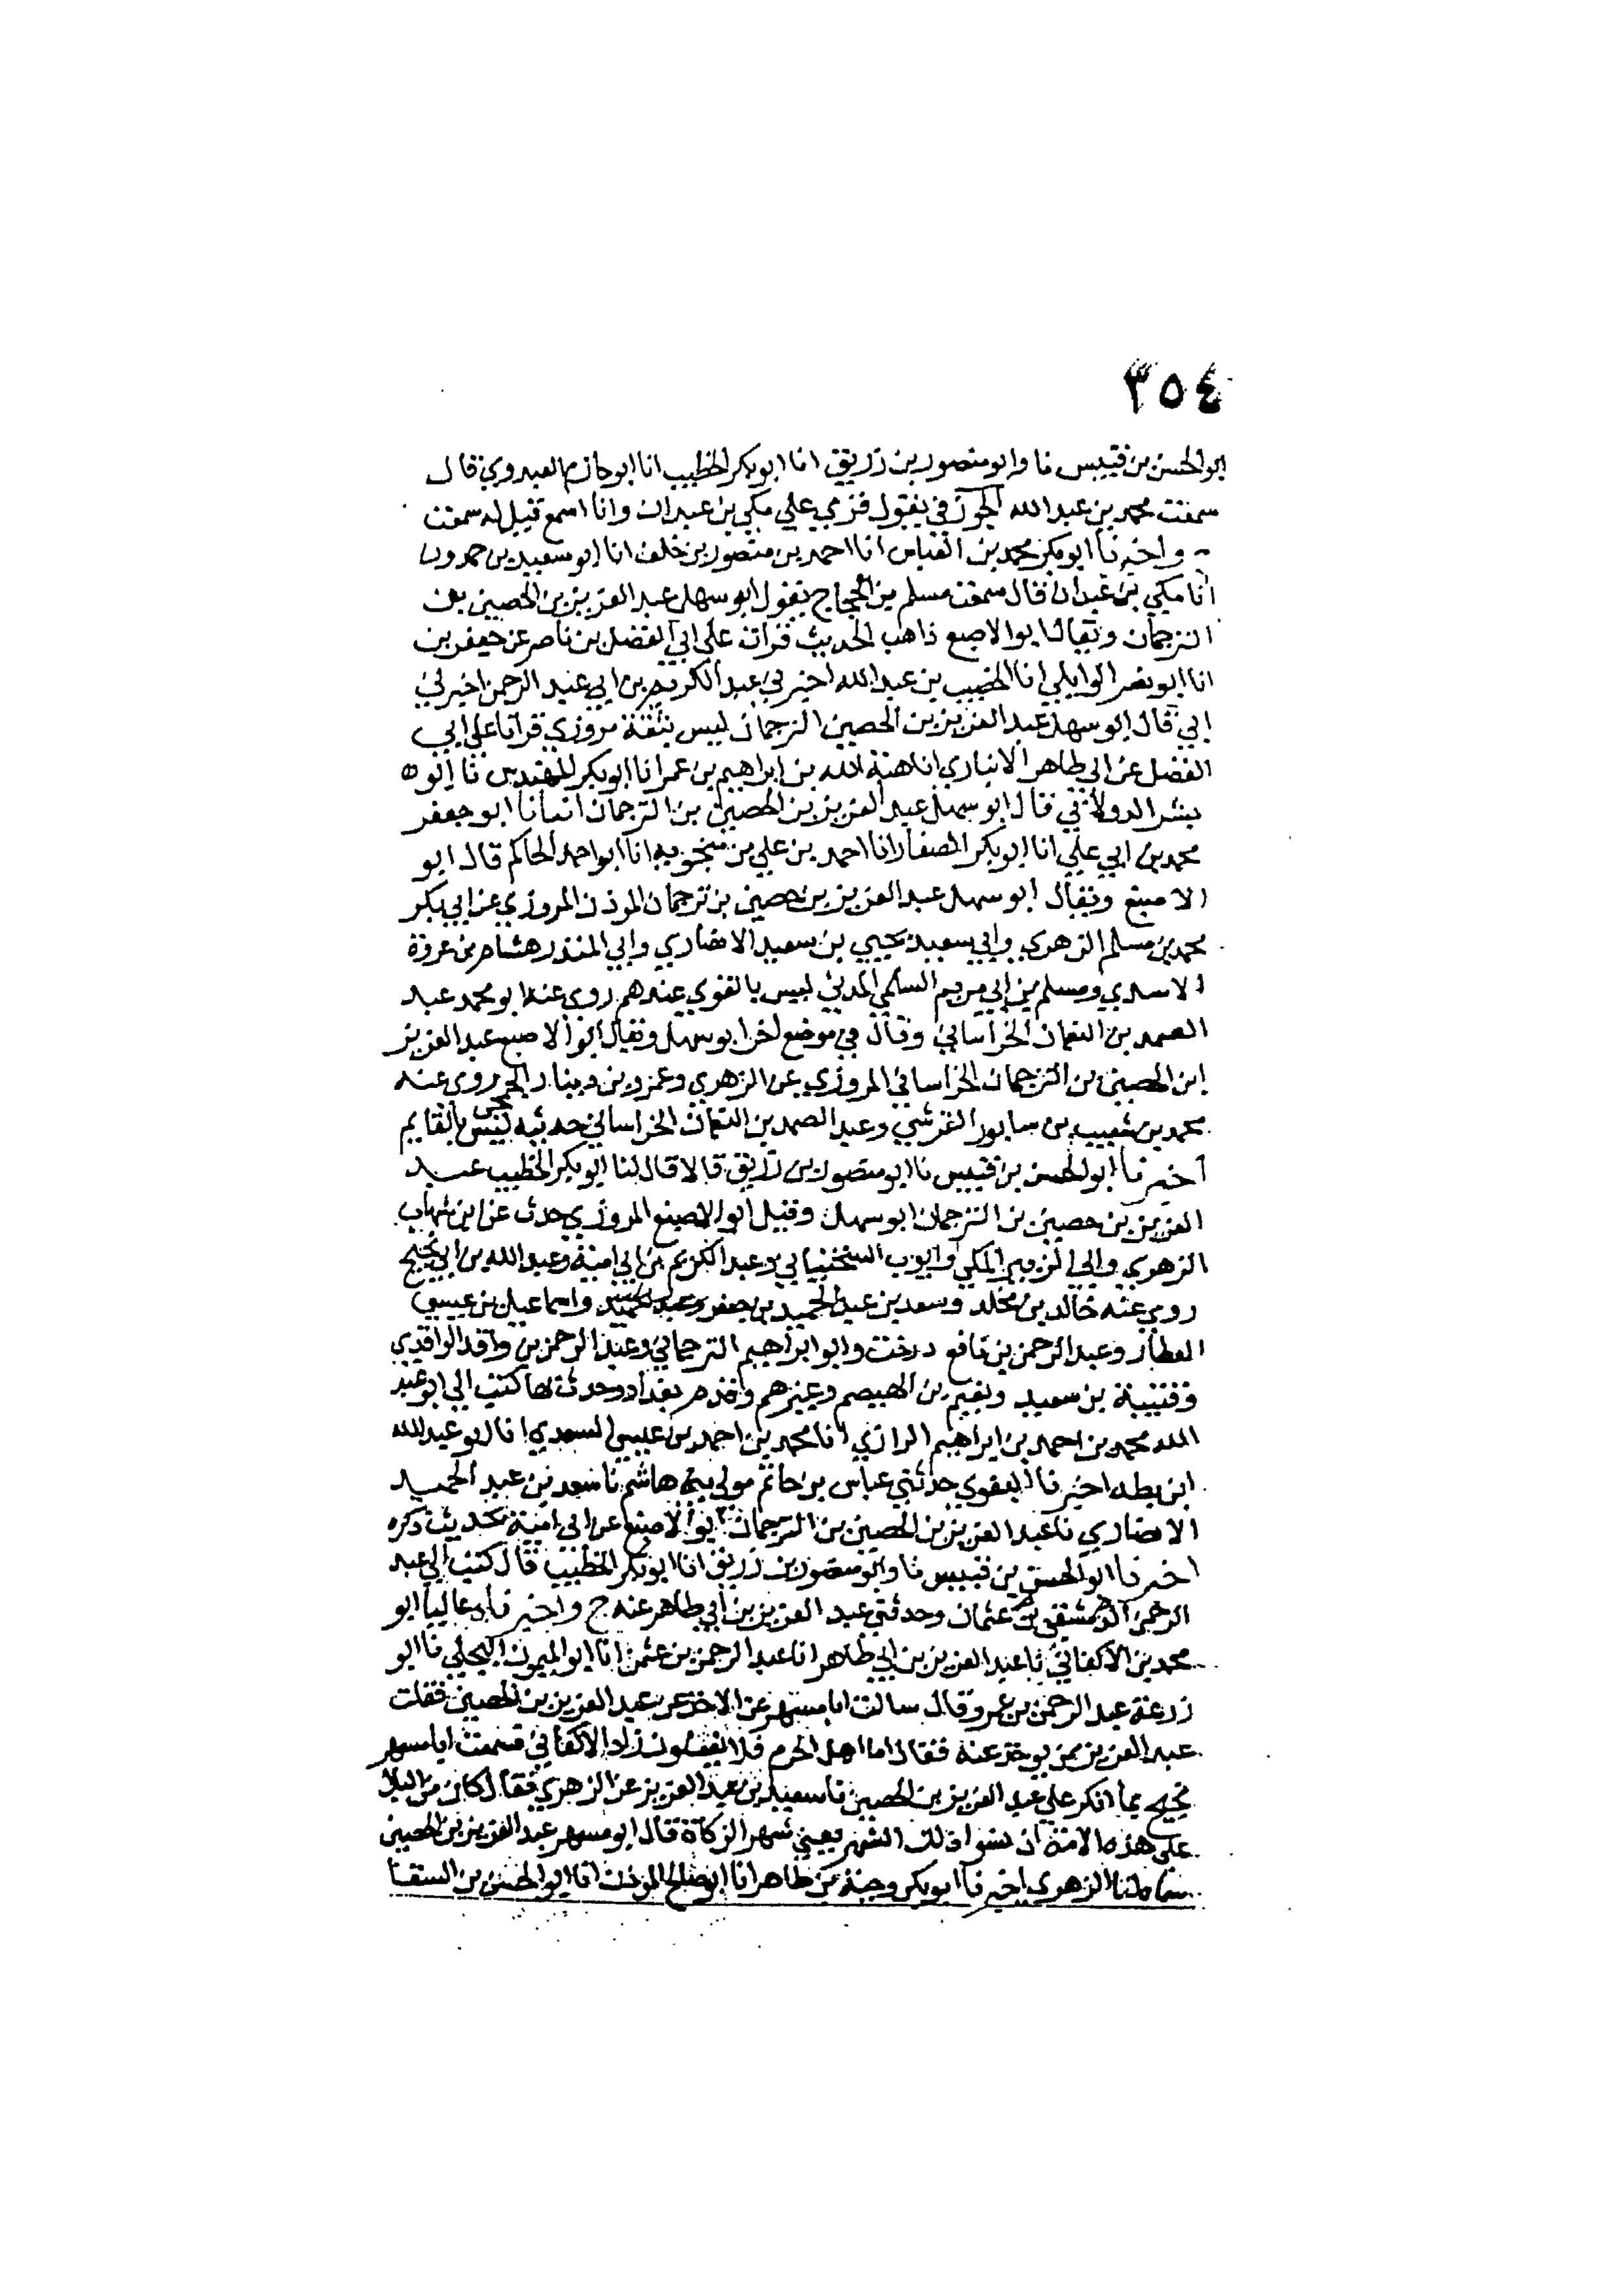 ٣٥٤
ابو الحسن بن قبيس نا وابو منصور بن زريق انا ابو بكر الخطيب انا ابو حازم العبدوي قال
سمعت محمد بن عبد الله الجوزقي يقول قري علي مكي بن عبدان وانا اسمع قيل له سمعت
واخبرنا ابو بكر محمد بن العباس انا احمد بن منصور بن خلف انا ابو سعيد بن حمدون
انا مكي بن عبدان قال سمعت مسلم بن الحجاج يقول ابو سهل عبد العزيز بن الحصين بن
الترجمان ويقال ابو الاصبع ذاهب الحديث قرات علي ابي الفضل بن ناصر عن جعفر بن
انا ابو نصر الوايلي انا الخصيب بن عبد الله اخبرني عبد الكريم بن ابي عبد الرحمن اخبرني
ابي قال ابو سهل عبد العزيز بن الحصين الترجمان ليس بثقة مروزي قرانا علي ابي
الفضل عن ابي طاهر الانباري انا هبة الله بن ابراهيم بن عمر انا ابو بكر المهندس نا ابو
بشر الدولابي قال ابو سهل عبد العزيز بن الحصين بن الترجمان انبانا ابو جعفر
محمد بن ابي علي انا ابو بكر الصفار انا احمد بن علي بن منجويه انا ابو احمد الحاكم قال ابو
الاصبع ويقال ابو سهل عبد العزيز بن حصين بن ترجمان المروزي عن ابي بكر
محمد بن مسلم الزهري وابي سعيد يحيي بن سعيد الانصاري وابي المنذر هشام بن عروة
الاسدي ومسلم بن ابي مريم السلمي المديني ليس بالقوي عندهم روي عنه ابو محمد عبد
الصمد بن النعمان الخراساني وقال في موضع اخر ابو سهل ويقال ابو الاصبع عبد العزيز
ابن الحصين بن الترجمان الخراساني المروزي عن الزهري وعمرو بن دينار روي عنه
محمد بن شعيب بن سابور القرشي وعبد الصمد بن النعمان الخراساني حديثه ليس بالقايم
اخبرنا ابو الحسن بن قبيس نا ابو منصور بن زريق قالا قال لنا ابو بكر الخطيب عبد
العزيز بن حصين بن الترجمان ابو سهل وقيل ابو الاصبع المروزي حدث عن ابن شهاب
الزهري وابي الزبير المكي وايوب السختياني وعبد الكريم بن ابي امية وعبد الله بن ابي نجيح
روي عنه خالد بن مخلد وسعد بن عبد الحميد بن جعفر واسماعيل بن عيسي
العطار وعبد الرحمن بن نافع درخت وابو ابراهيم الترجماني وعبد الرحمن بن واقد الواقدي
وقتيبة بن سعيد ونعيم بن الهيصم وغيرهم وقدم بغداد وحدث بها كتب الي ابو عبد
الله محمد بن احمد بن ابراهيم الرازي انا محمد بن احمد بن عيسي السعدي انا ابو عبد الله
ابن بطه اخبرنا البغوي حدثني عباس بن حاتم مولي بني هاشم نا سعد بن عبد الحميد
الانصاري نا عبد العزيز بن الحصين بن الترجمان ابو الاصبع عن ابي امية بحديث ذكره
اخبرنا ابو الحسن بن قبيس نا وابو منصور بن زريق انا ابو بكر الخطيب قال كتب الي عبد
الرحمن الدمشقي بن عثمان وحدثني عبد العزيز بن ابي طاهر عنه ح واخبرناه عاليا ابو
محمد بن الاكفاني نا عبد العزيز بن ابي طاهر انا عبد الرحمن بن عثمن انا ابو الميمون البجلي نا ابو
زرعة عبد الرحمن بن عمرو قال سالت ابا مسهر عن الاخذ عن عبد العزيز بن الحصين فقلت
عبد العزيز ممن يوخذ عنه فقال اما اهل الحزم فلا يفعلون زاد الاكفاني فسمعت ابا مسهر
يحتج بما انكر علي عبد العزيز بن الحصين نا سعيد بن عبد العزيز عن الزهري فقال كان من البلا
علي هذه الامة ان نسوا ذلك الشهر يعني شهر الزكاة قال ابو مسهر عبد العزيز بن الحصين
سماه لنا الزهري اخبرنا ابو بكر وجيه بن طاهر انا ابو صالح الموذن انا ابو الحسن بن السقا